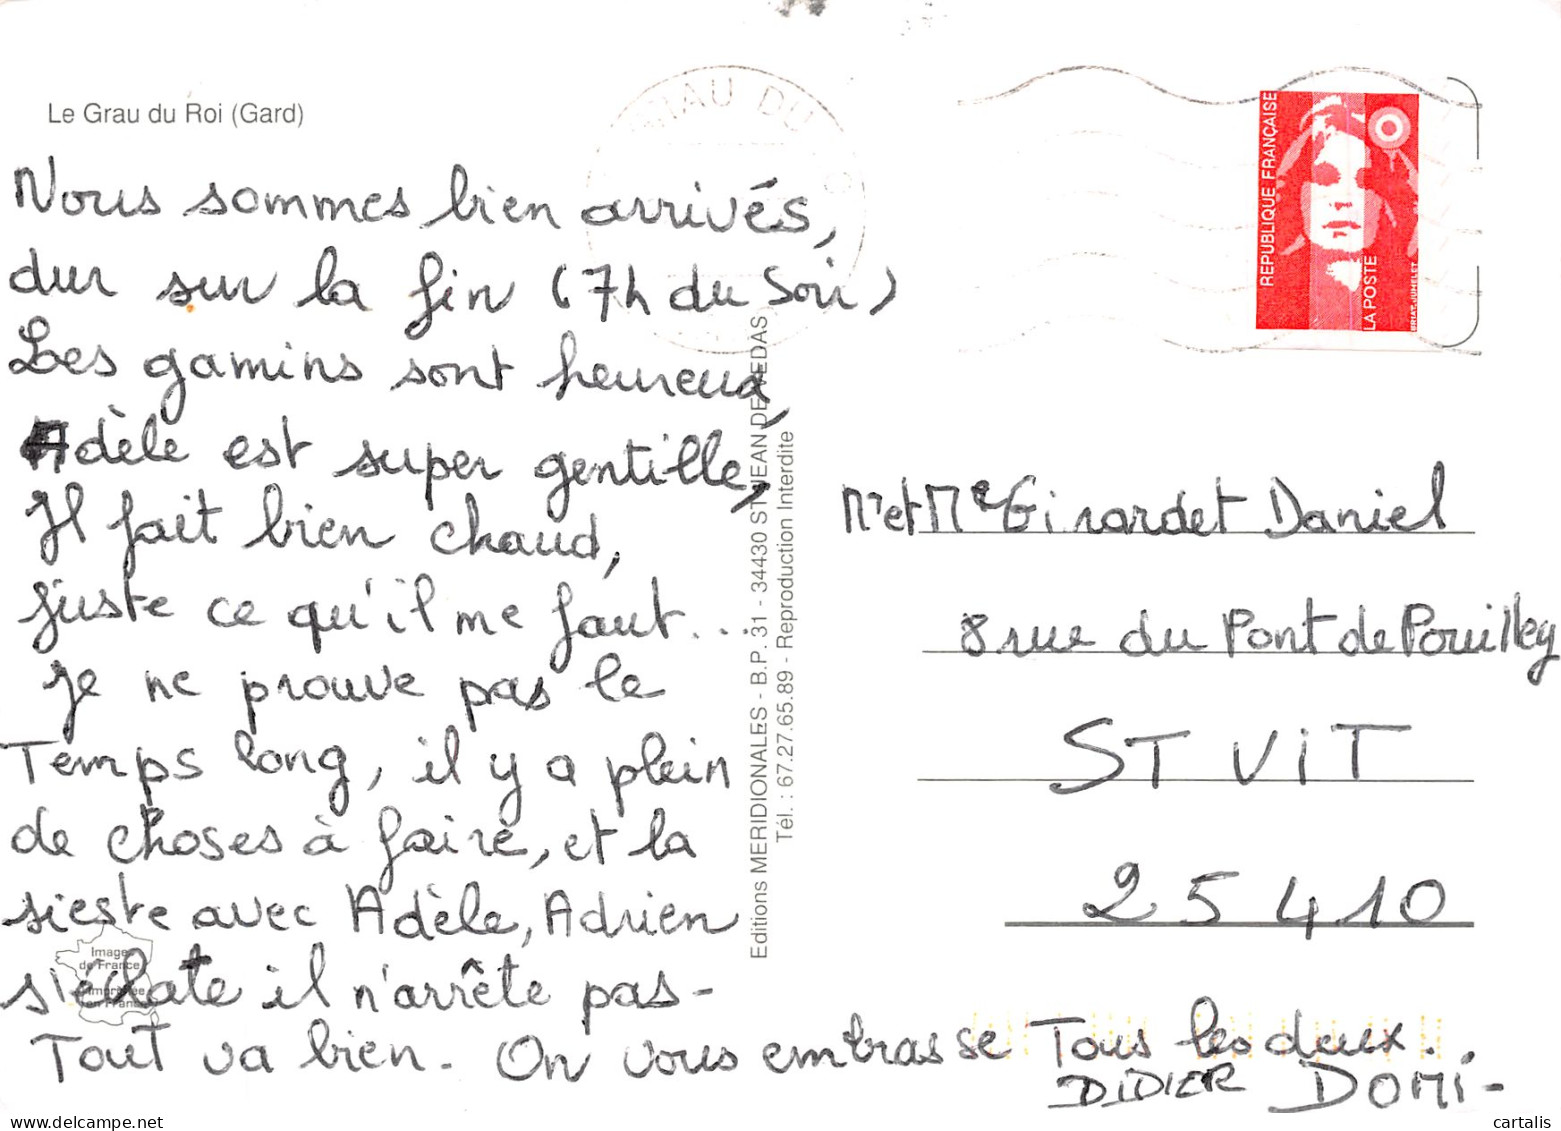 Le Grau du Roi (Gard)
Nous sommes bien arrivés,
dur sur la fin (7h du Soir)
Les gamins sont heureux,
Adèle est super gentille,
Il fait bien chaud,
juste ce qu'il me faut...
Je ne prouve pas le
Temps long, il y a plein
de choses à faire, et la
sieste avec Adèle, Adrien
s'éclate il n'arrête pas-
Tout va bien. On vous embrasse Tous les deux..
DIDIER DOMI-
Image
de France
Imprimée
en France
Editions MERIDIONALES - B.P. 31 - 34430 ST JEAN DE VEDAS
Tél. : 67.27.65.89 - Reproduction Interdite
GRAU DU
REPUBLIQUE FRANÇAISE
LA POSTE
BRIAT-JUMELET
Mr et Me Girardet Daniel
8 rue du Pont de Pouilley
ST VIT
25410
cartalis